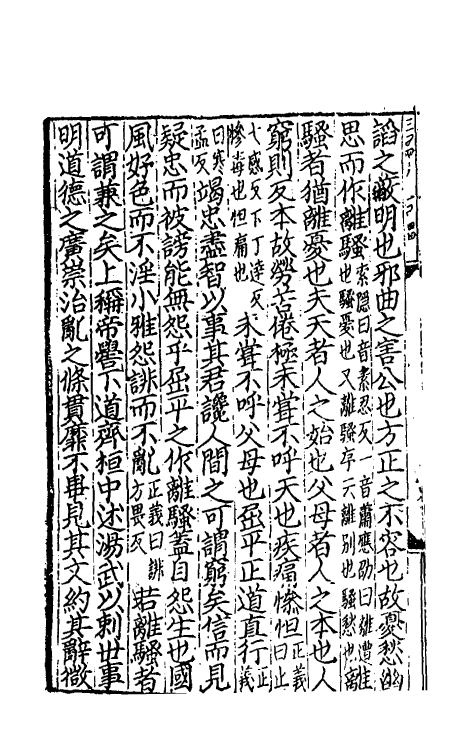 謟之蔽明也邪曲之害公也方正之不容也故憂愁幽
思而作離騷索隱曰音素忍反一音蕭應劭曰離遭也騷憂也又離騷序云離別也騷愁也離
騷者猶離憂也夫天者人之始也父母者人之本也人
窮則反本故勞苦倦極未甞不呼天也疾痛慘怛正義曰上
七感反下丁達反慘毒也怛痛也未甞不呼父母也屈平正道直行正義
曰寒孟反竭忠盡智以事其君讒人間之可謂窮矣信而見
疑忠而被謗能無怨乎屈平之作離騷蓋自怨生也國
風好色而不淫小雅怨誹而不亂正義曰誹方畏反若離騷者
可謂兼之矣上稱帝嚳下道齊桓中述湯武以刺世事
明道德之廣崇治亂之條貫靡不畢見其文約其辭微